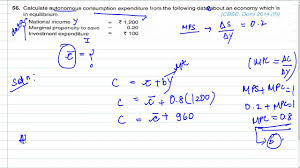 56. Calculate autonomous consumption expenditure from the following data about an economy which is in equilibrium. (CBSE, Delhi 2014 (R))
National income Y = ₹ 1,200
Marginal propensity to save = 0.20
Investment expenditure = ₹ 100
I
MPS → ΔS/ΔY = 0.2
c̅ = ?
Soln:
MPC
C = c̅ + bY
C = c̅ + 0.8(1200)
C = c̅ + 960
(MPC = ΔC/ΔY)
MPS + MPC = 1
0.2 + MPC = 1
MPC = 0.8
b